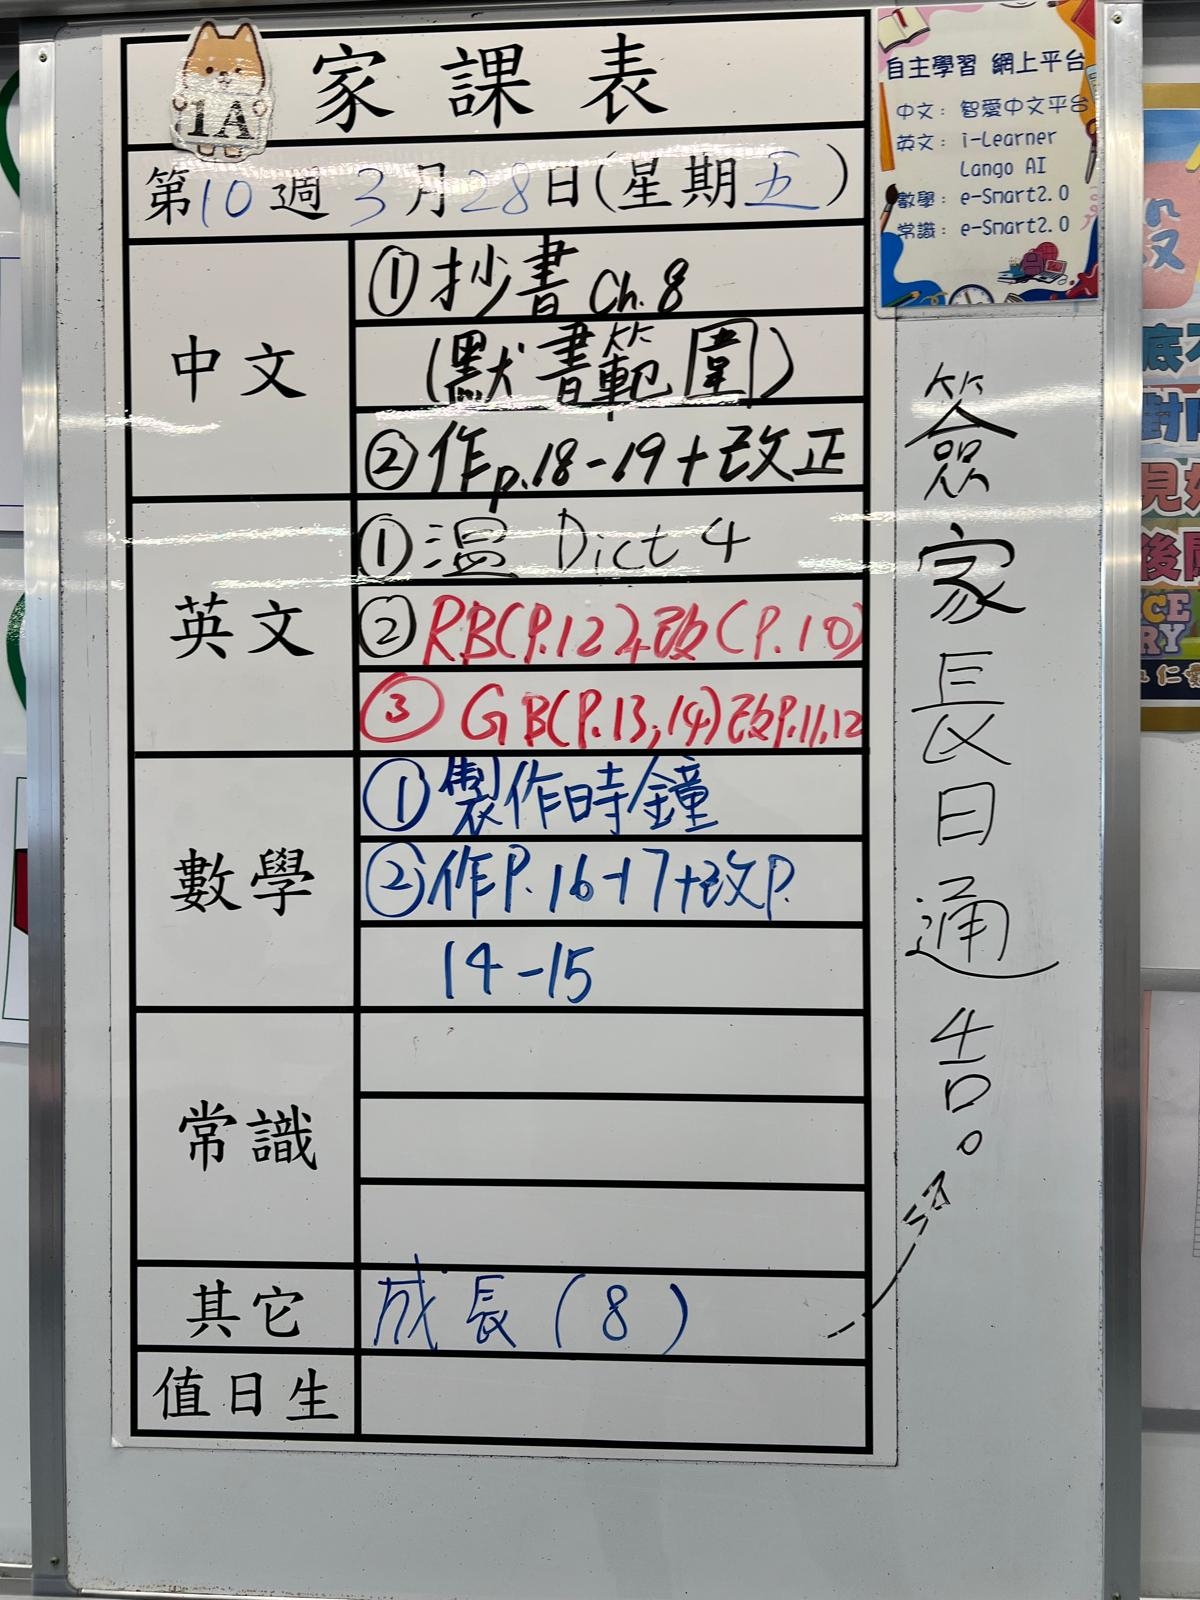 1A
家課表
第10週3月28日(星期五)
中文
①抄書 Ch.8
(默書範圍)
②作p.18-19+改正
英文
①溫 Dict 4
②RB(P.12)+改(P.10)
③ GB(P.13,14)改P.11,12
數學
①製作時鐘
②作P.16-17+改P.
14-15
常識
其它
成長(8)
值日生
自主學習 網上平台
中文：智愛中文平台
英文：i-Learner
Lango AI
數學：e-Smart2.0
常識：e-Smart2.0
簽家長日通告。